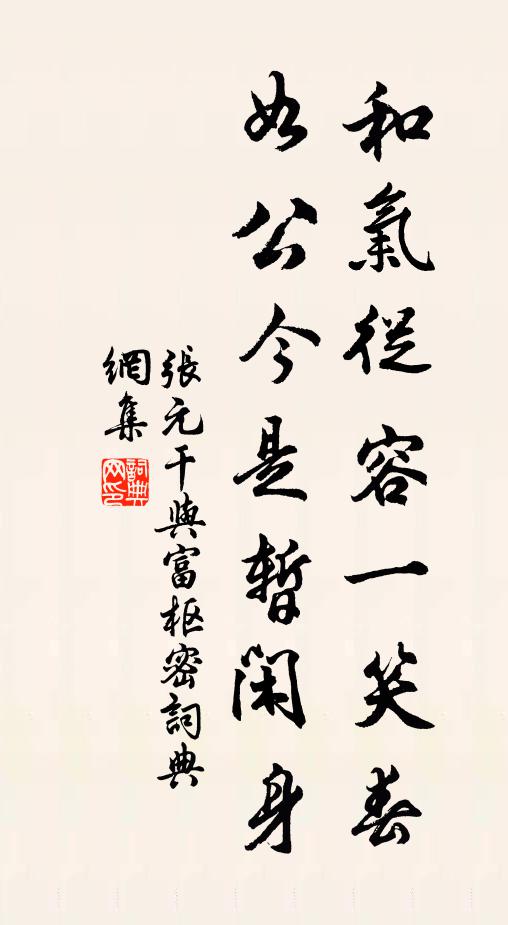 和氣從容一笑春
如公今是暫閑身
張元干與富樞密詞典
網集
詞典
网印